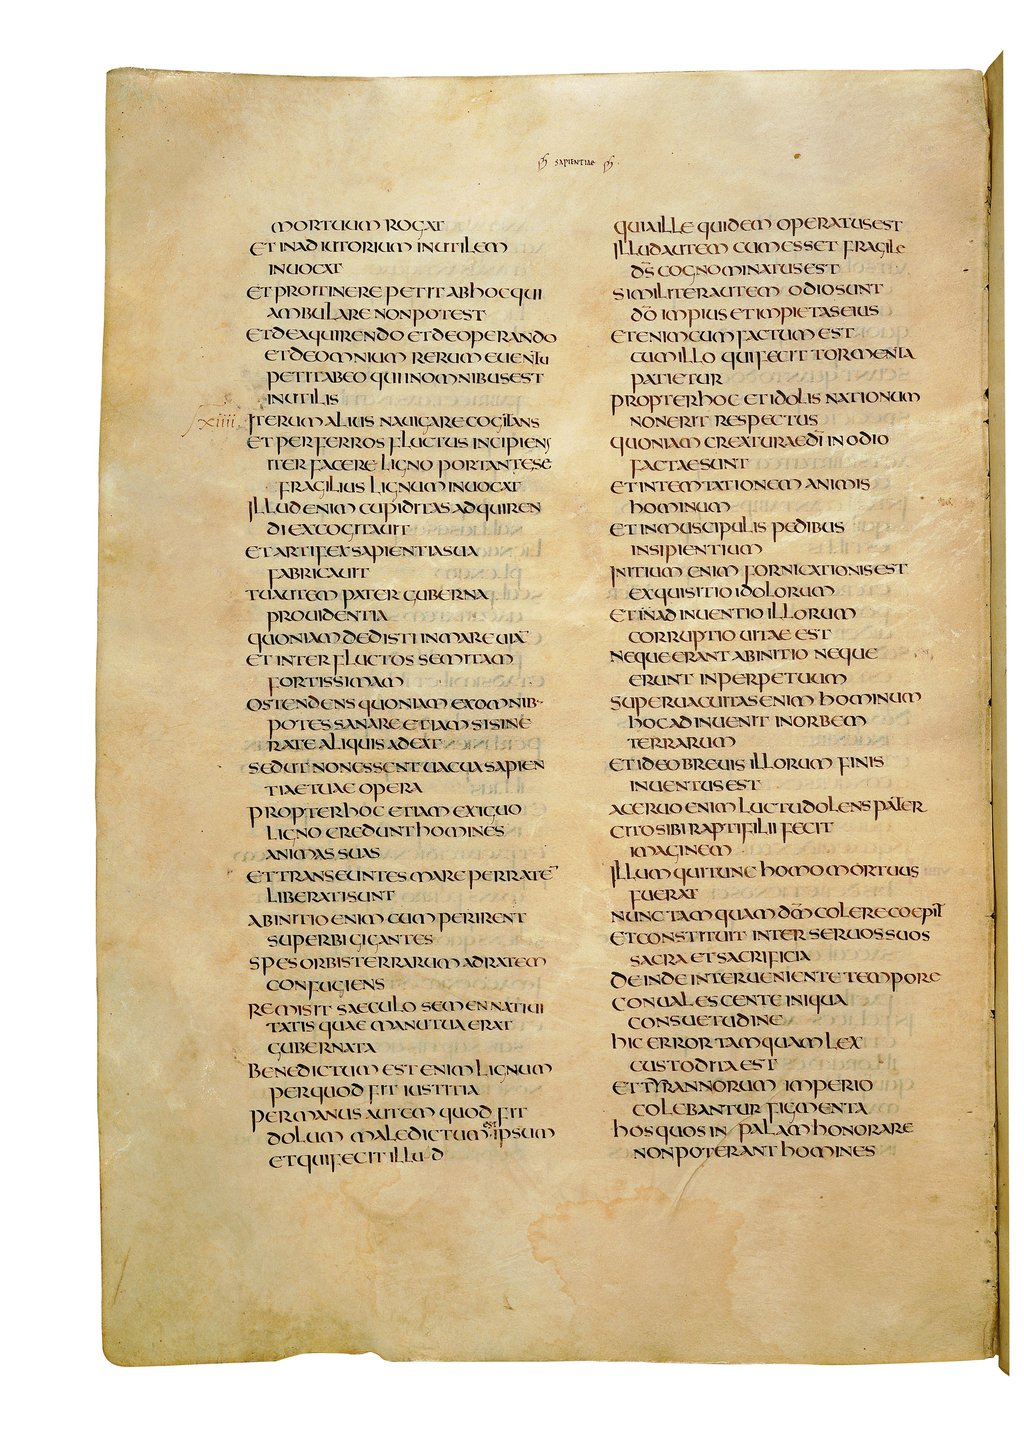 SAPIENTIAE
MORTUUM ROGAT
ET IN ADIUTORIUM INUTILEM
INUOCAT
ET PRO ITINERE PETIT AB HOC QUI
AMBULARE NON POTEST
ET DE AQUIRENDO ET DE OPERANDO
ET DE OMNIUM RERUM EUENTU
PETIT AB EO QUI IN OMNIBUS EST
INUTILIS
XIIII ITERUM ALIUS NAUIGARE COGITANS
ET PER FERROS FLUCTUS INCIPIENS
ITER FACERE LIGNO PORTANTE SE
FRAGILIUS LIGNUM INUOCAT
ILLUD ENIM CUPIDITAS ADQUIREN
DI EXCOGITAUIT
ET ARTIFEX SAPIENTIA SUA
FABRICAUIT
TU AUTEM PATER GUBERNA
PROUIDENTIA
QUONIAM DEDISTI IN MARE UIĀ
ET INTER FLUCTOS SEMITAM
FORTISSIMAM
OSTENDENS QUONIAM EX OMNIB·
POTES SANARE ETIAM SI SINE
RATE ALIQUIS ADEAT
SED UT NON ESSENT UACUA SAPIEN
TIAE TUAE OPERA
PROPTER HOC ETIAM EXIGUO
LIGNO CREDUNT HOMINES
ANIMAS SUAS
ET TRANSEUNTES MARE PER RATĒ
LIBERATI SUNT
AB INITIO ENIM CUM PERIRENT
SUPERBI GIGANTES
SPES ORBIS TERRARUM AD RATEM
CONFUGIENS
REMISIT SAECULO SEMEN NATIUI
TATIS QUAE MANU TUA ERAT
GUBERNATA
BENEDICTUM EST ENIM LIGNUM
PER QUOD FIT IUSTITIA
PER MANUS AUTEM QUOD FIT
DOLUM MALEDICTUM EST IPSUM
ET QUI FECIT ILLUD
QUIA ILLE QUIDEM OPERATUS EST
ILLUD AUTEM CUM ESSET FRAGILE
D̄S COGNOMINATUS EST
SIMILITER AUTEM ODIO SUNT
D̄O IMPIUS ET IMPIETAS EIUS
ETENIM CUM FACTUM EST
CUM ILLO QUI FECIT TORMENTA
PATIETUR
PROPTER HOC ET IDOLIS NATIONUM
NON ERIT RESPECTUS
QUONIAM CREATURAE D̄I IN ODIO
FACTAE SUNT
ET IN TEMTATIONEM ANIMIS
HOMINUM
ET IN MUSCIPULIS PEDIBUS
INSIPIENTIUM
INITIUM ENIM FORNICATIONIS EST
EXQUISITIO IDOLORUM
ET INADINUENTIO ILLORUM
CORRUPTIO UITAE EST
NEQUE ERANT AB INITIO NEQUE
ERUNT IN PERPETUUM
SUPERUACUITAS ENIM HOMINUM
HOC ADINUENIT IN ORBEM
TERRARUM
ET IDEO BREUIS ILLORUM FINIS
INUENTUS EST
ACERUO ENIM LUCTU DOLENS PATER
CITO SIBI RAPTI FILII FECIT
IMAGINEM
ILLUM QUI TUNC HOMO MORTUUS
FUERAT
NUNC TAMQUAM D̄M COLERE COEPIT
ET CONSTITUIT INTER SERUOS SUOS
SACRA ET SACRIFICIA
DEINDE INTERUENIENTE TEMPORE
CONUALESCENTE INIQUA
CONSUETUDINE
HIC ERROR TAMQUAM LEX
CUSTODITA EST
ET TYRANNORUM IMPERIO
COLEBANTUR FIGMENTA
HOS QUOS IN PALAM HONORARE
NON POTERANT HOMINES